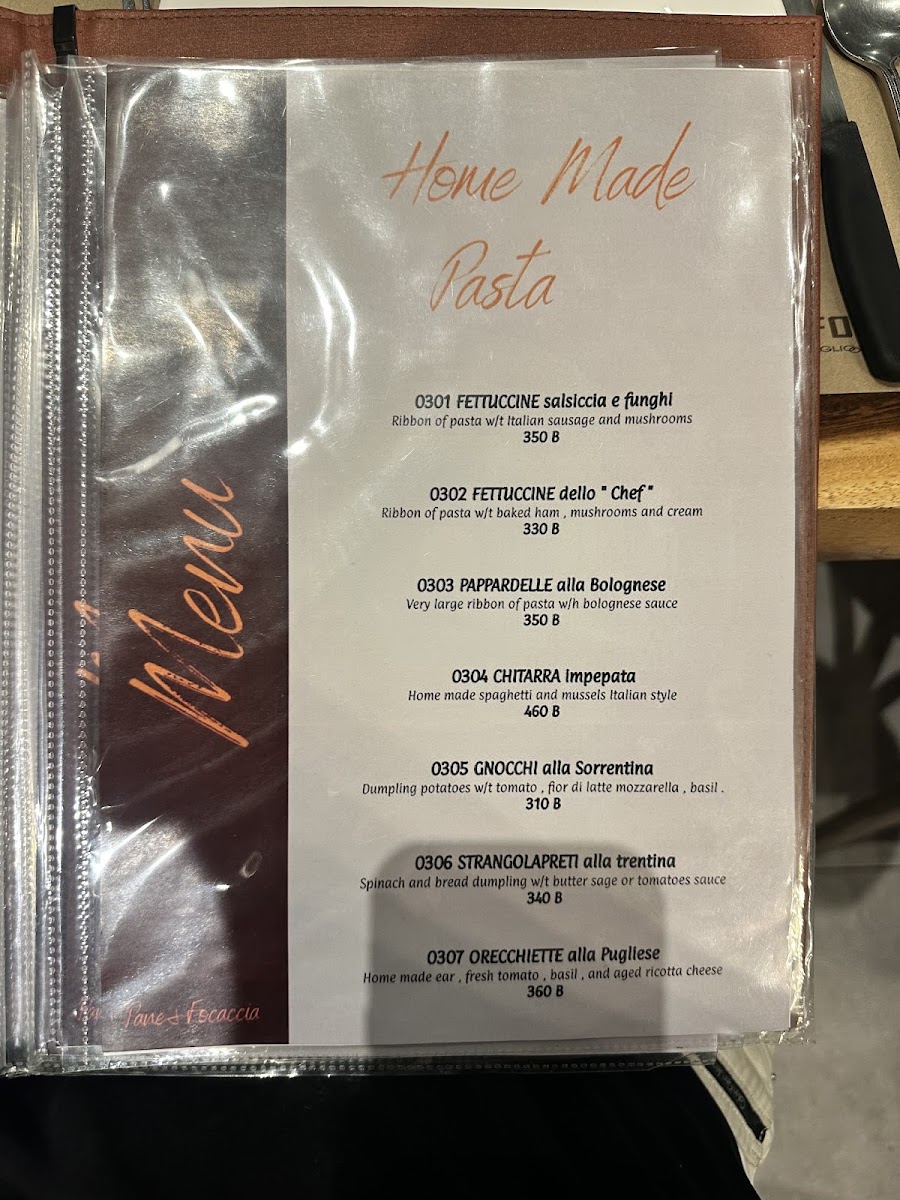 Home Made
Pasta
Menu
0301 FETTUCCINE salsiccia e funghi
Ribbon of pasta w/t Italian sausage and mushrooms
350 B
0302 FETTUCCINE dello " Chef "
Ribbon of pasta w/t baked ham , mushrooms and cream
330 B
0303 PAPPARDELLE alla Bolognese
Very large ribbon of pasta w/h bolognese sauce
350 B
0304 CHITARRA impepata
Home made spaghetti and mussels Italian style
460 B
0305 GNOCCHI alla Sorrentina
Dumpling potatoes w/t tomato , fior di latte mozzarella , basil .
310 B
0306 STRANGOLAPRETI alla trentina
Spinach and bread dumpling w/t butter sage or tomatoes sauce
340 B
0307 ORECCHIETTE alla Pugliese
Home made ear , fresh tomato , basil , and aged ricotta cheese
360 B
Pane & Focaccia